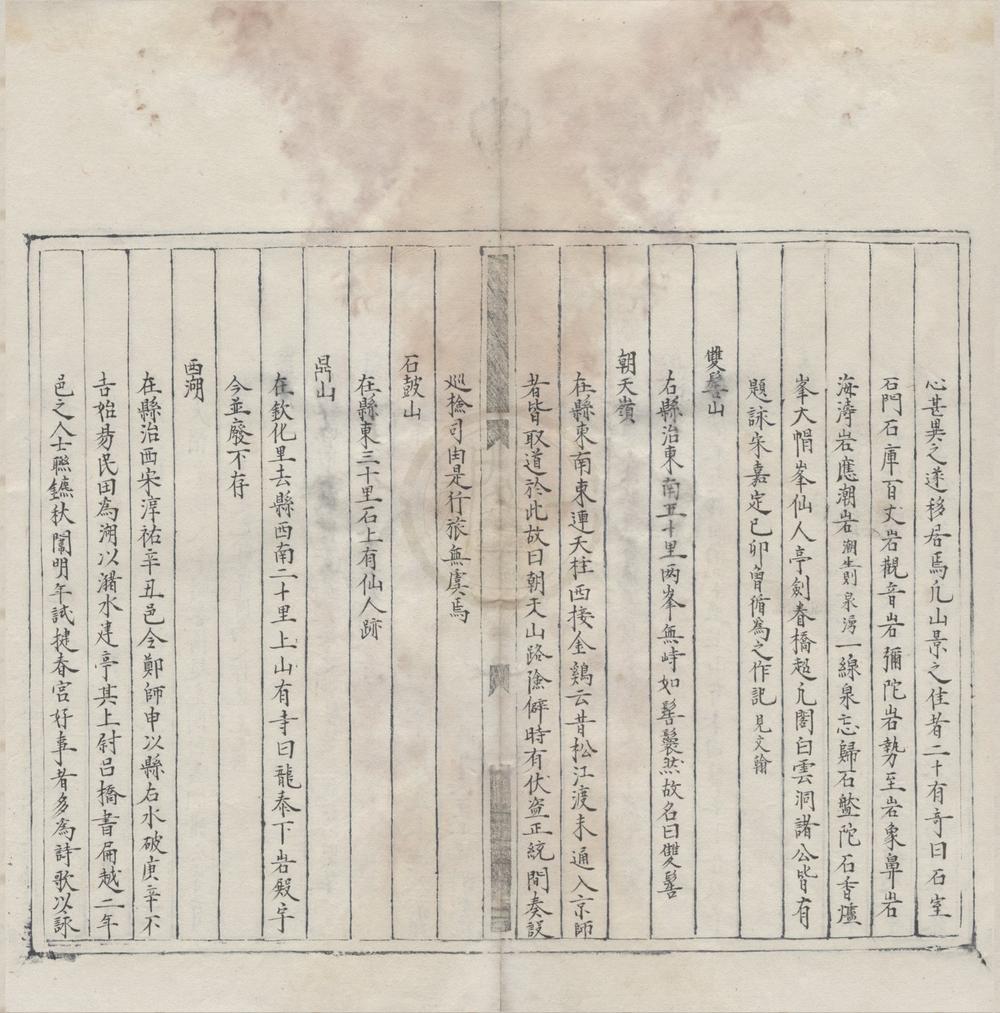 心甚異之遂移居焉凢山景之佳者二十有奇曰石室
石門石庫百丈岩觀音岩彌陀岩勢至岩象鼻岩
海濤岩應潮岩潮生則泉湧一線泉忘歸石盤陀石香爐
峯大帽峯仙人亭劍脊橋超凢閣白雲洞諸公皆有
題詠宋嘉定己卯曾循為之作記見文翰
雙髻山
右縣治東南五十里两峯無峙如髻鬟然故名曰雙髻
朝天嶺
在縣東南東連天柱西接金鷄云昔松江渡未通入京師
者皆取道於此故曰朝天山路險僻時有伏盗正統間奏設
廵撿司由是行旅無虞焉
石鼓山
在縣東三十里石上有仙人跡
鼎山
在欽化里去縣西南二十里上山有寺曰龍泰下岩殿宇
今並廢不存
西湖
在縣治西宋淳祐辛丑邑令鄭師申以縣右水破庚辛不
吉始昜民田為湖以瀦水建亭其上尉吕橋書扁越二年
邑之人士聯鑣秋闈明年試揵春宫好事者多為詩歌以詠